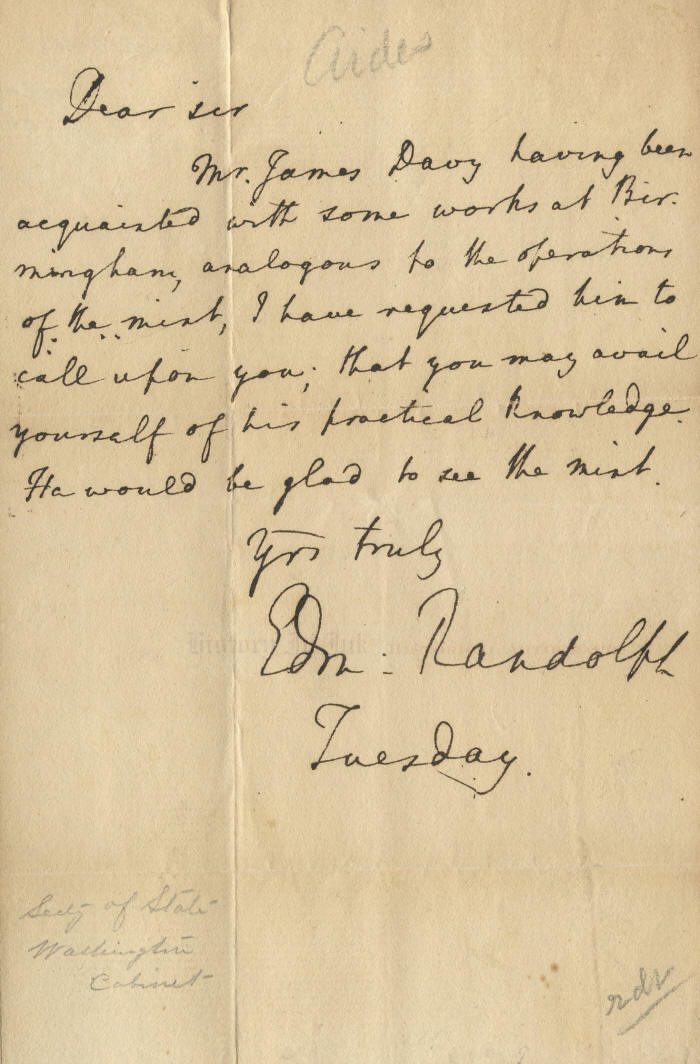 Aides
Dear sir
Mr. James Davy having been
acquainted with some works at Bir-
mingham, analogous to the operations
of the mint, I have requested him to
call upon you; that you may avail
yourself of his practical knowledge.
He would be glad to see the mint.
Yrs truly
Edm: Randolph
Tuesday.
Secty of State
Washington
Cabinet